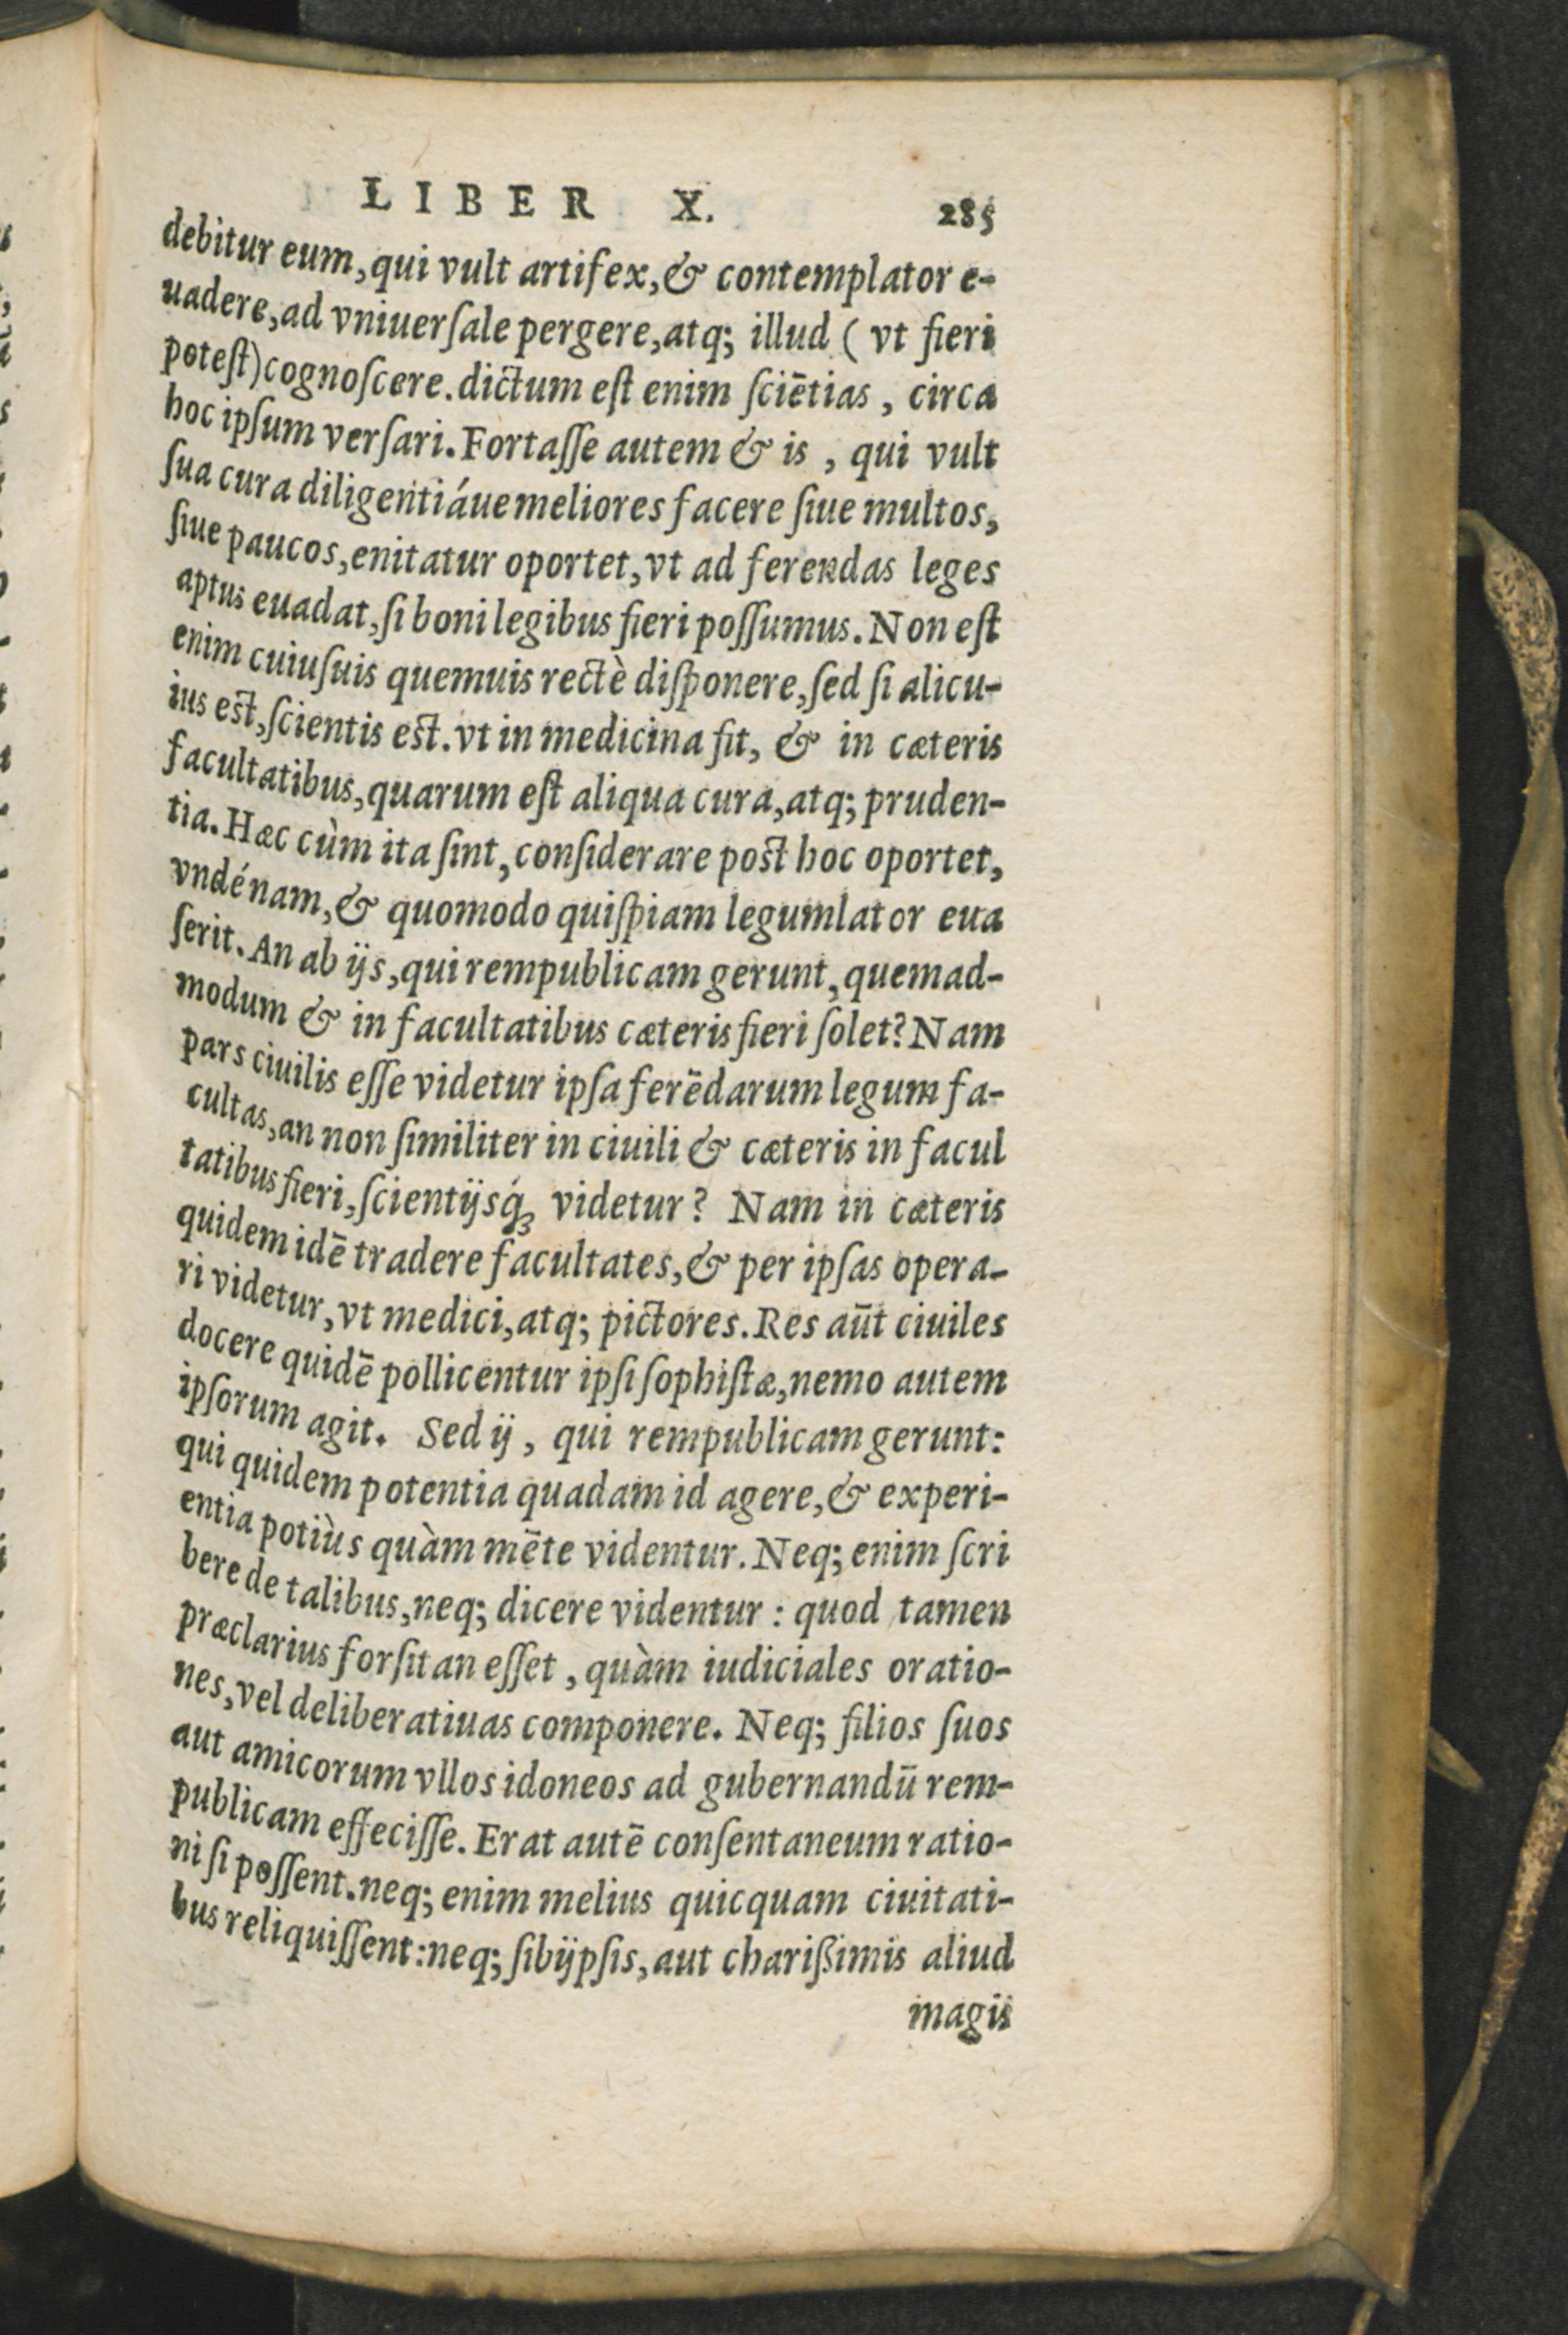 LIBER X. 285
debitur eum, qui vult artifex, & contemplator e-
uadere, ad vniuerſale pergere, atq; illud ( vt fieri
poteſt) cognoſcere. dictum eſt enim ſciētias, circa
hoc ipſum verſari. Fortaſſe autem & is, qui vult
ſua cura diligentiáue meliores facere ſiue multos,
ſiue paucos, enitatur oportet, vt ad ferendas leges
aptus euadat, ſi boni legibus fieri poſſumus. Non eſt
enim cuiuſuis quemuis rectè diſponere, ſed ſi alicu-
ius eſt, ſcientis eſt. vt in medicina fit, & in cæteris
facultatibus, quarum eſt aliqua cura, atq; pruden-
tia. Hæc cùm ita ſint, conſiderare poſt hoc oportet,
vndénam, & quomodo quiſpiam legumlator eua
ſerit. An ab ijs, qui rempublicam gerunt, quemad-
modum & in facultatibus cæteris fieri ſolet? Nam
pars ciuilis eſſe videtur ipſa ferēdarum legum fa-
cultas, an non ſimiliter in ciuili & cæteris in facul
tatibus fieri, ſcientijsq́ꝫ videtur? Nam in cæteris
quidem idē tradere facultates, & per ipſas opera-
ri videtur, vt medici, atq; pictores. Res aūt ciuiles
docere quidē pollicentur ipſi ſophiſtæ, nemo autem
ipſorum agit. Sed ij, qui rempublicam gerunt:
qui quidem potentia quadam id agere, & experi-
entia potiùs quàm mēte videntur. Neq; enim ſcri
bere de talibus, neq; dicere videntur: quod tamen
præclarius forſitan eſſet, quàm iudiciales oratio-
nes, vel deliberatiuas componere. Neq; filios ſuos
aut amicorum vllos idoneos ad gubernandū rem-
publicam effeciſſe. Erat autē conſentaneum ratio-
ni ſi poſſent. neq; enim melius quicquam ciuitati-
bus reliquiſſent: neq; ſibijpſis, aut charißimis aliud
magis